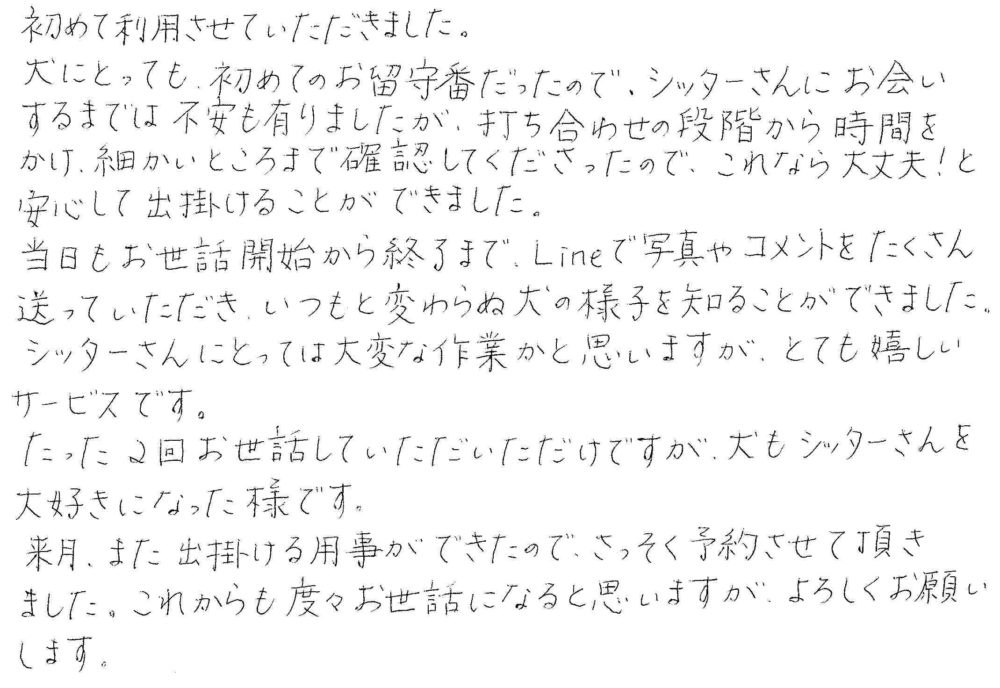 初めて利用させていただきました。
犬にとっても、初めてのお留守番だったので、シッターさんにお会い
するまでは不安も有りましたが、打ち合わせの段階から時間を
かけ、細かいところまで確認してくださったので、これなら大丈夫!と
安心して出掛けることができました。
当日もお世話開始から終了まで、Lineで写真やコメントをたくさん
送っていただき、いつもと変わらぬ犬の様子を知ることができました。
シッターさんにとっては大変な作業かと思いますが、とても嬉しい
サービスです。
たった2回お世話していただいただけですが、犬もシッターさんを
大好きになった様です。
来月、また出掛ける用事ができたので、さっそく予約させて頂き
ました。これからも度々お世話になると思いますが、よろしくお願い
します。